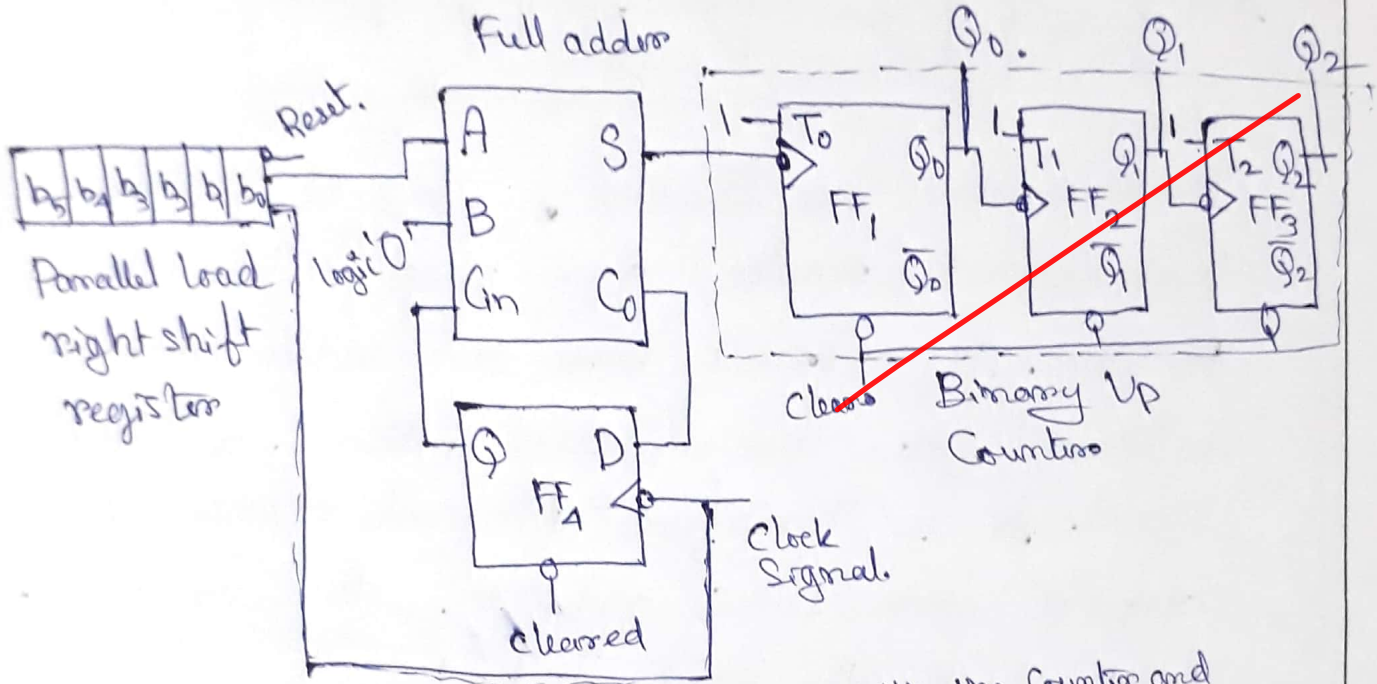 Full adder
Q0.
Q1
Q2
Reset.
b5 b4 b3 b2 b1 b0
Parallel load
right shift
register
logic '0'
A
B
Cin
S
C0
1
T0
Q0
FF1
Q̅0
1
T1
Q1
FF2
Q̅1
1
T2
Q2
FF3
Q̅2
Clear
Binary Up
Counter
Q
D
FF4
Clock
Signal.
cleared
Counter and